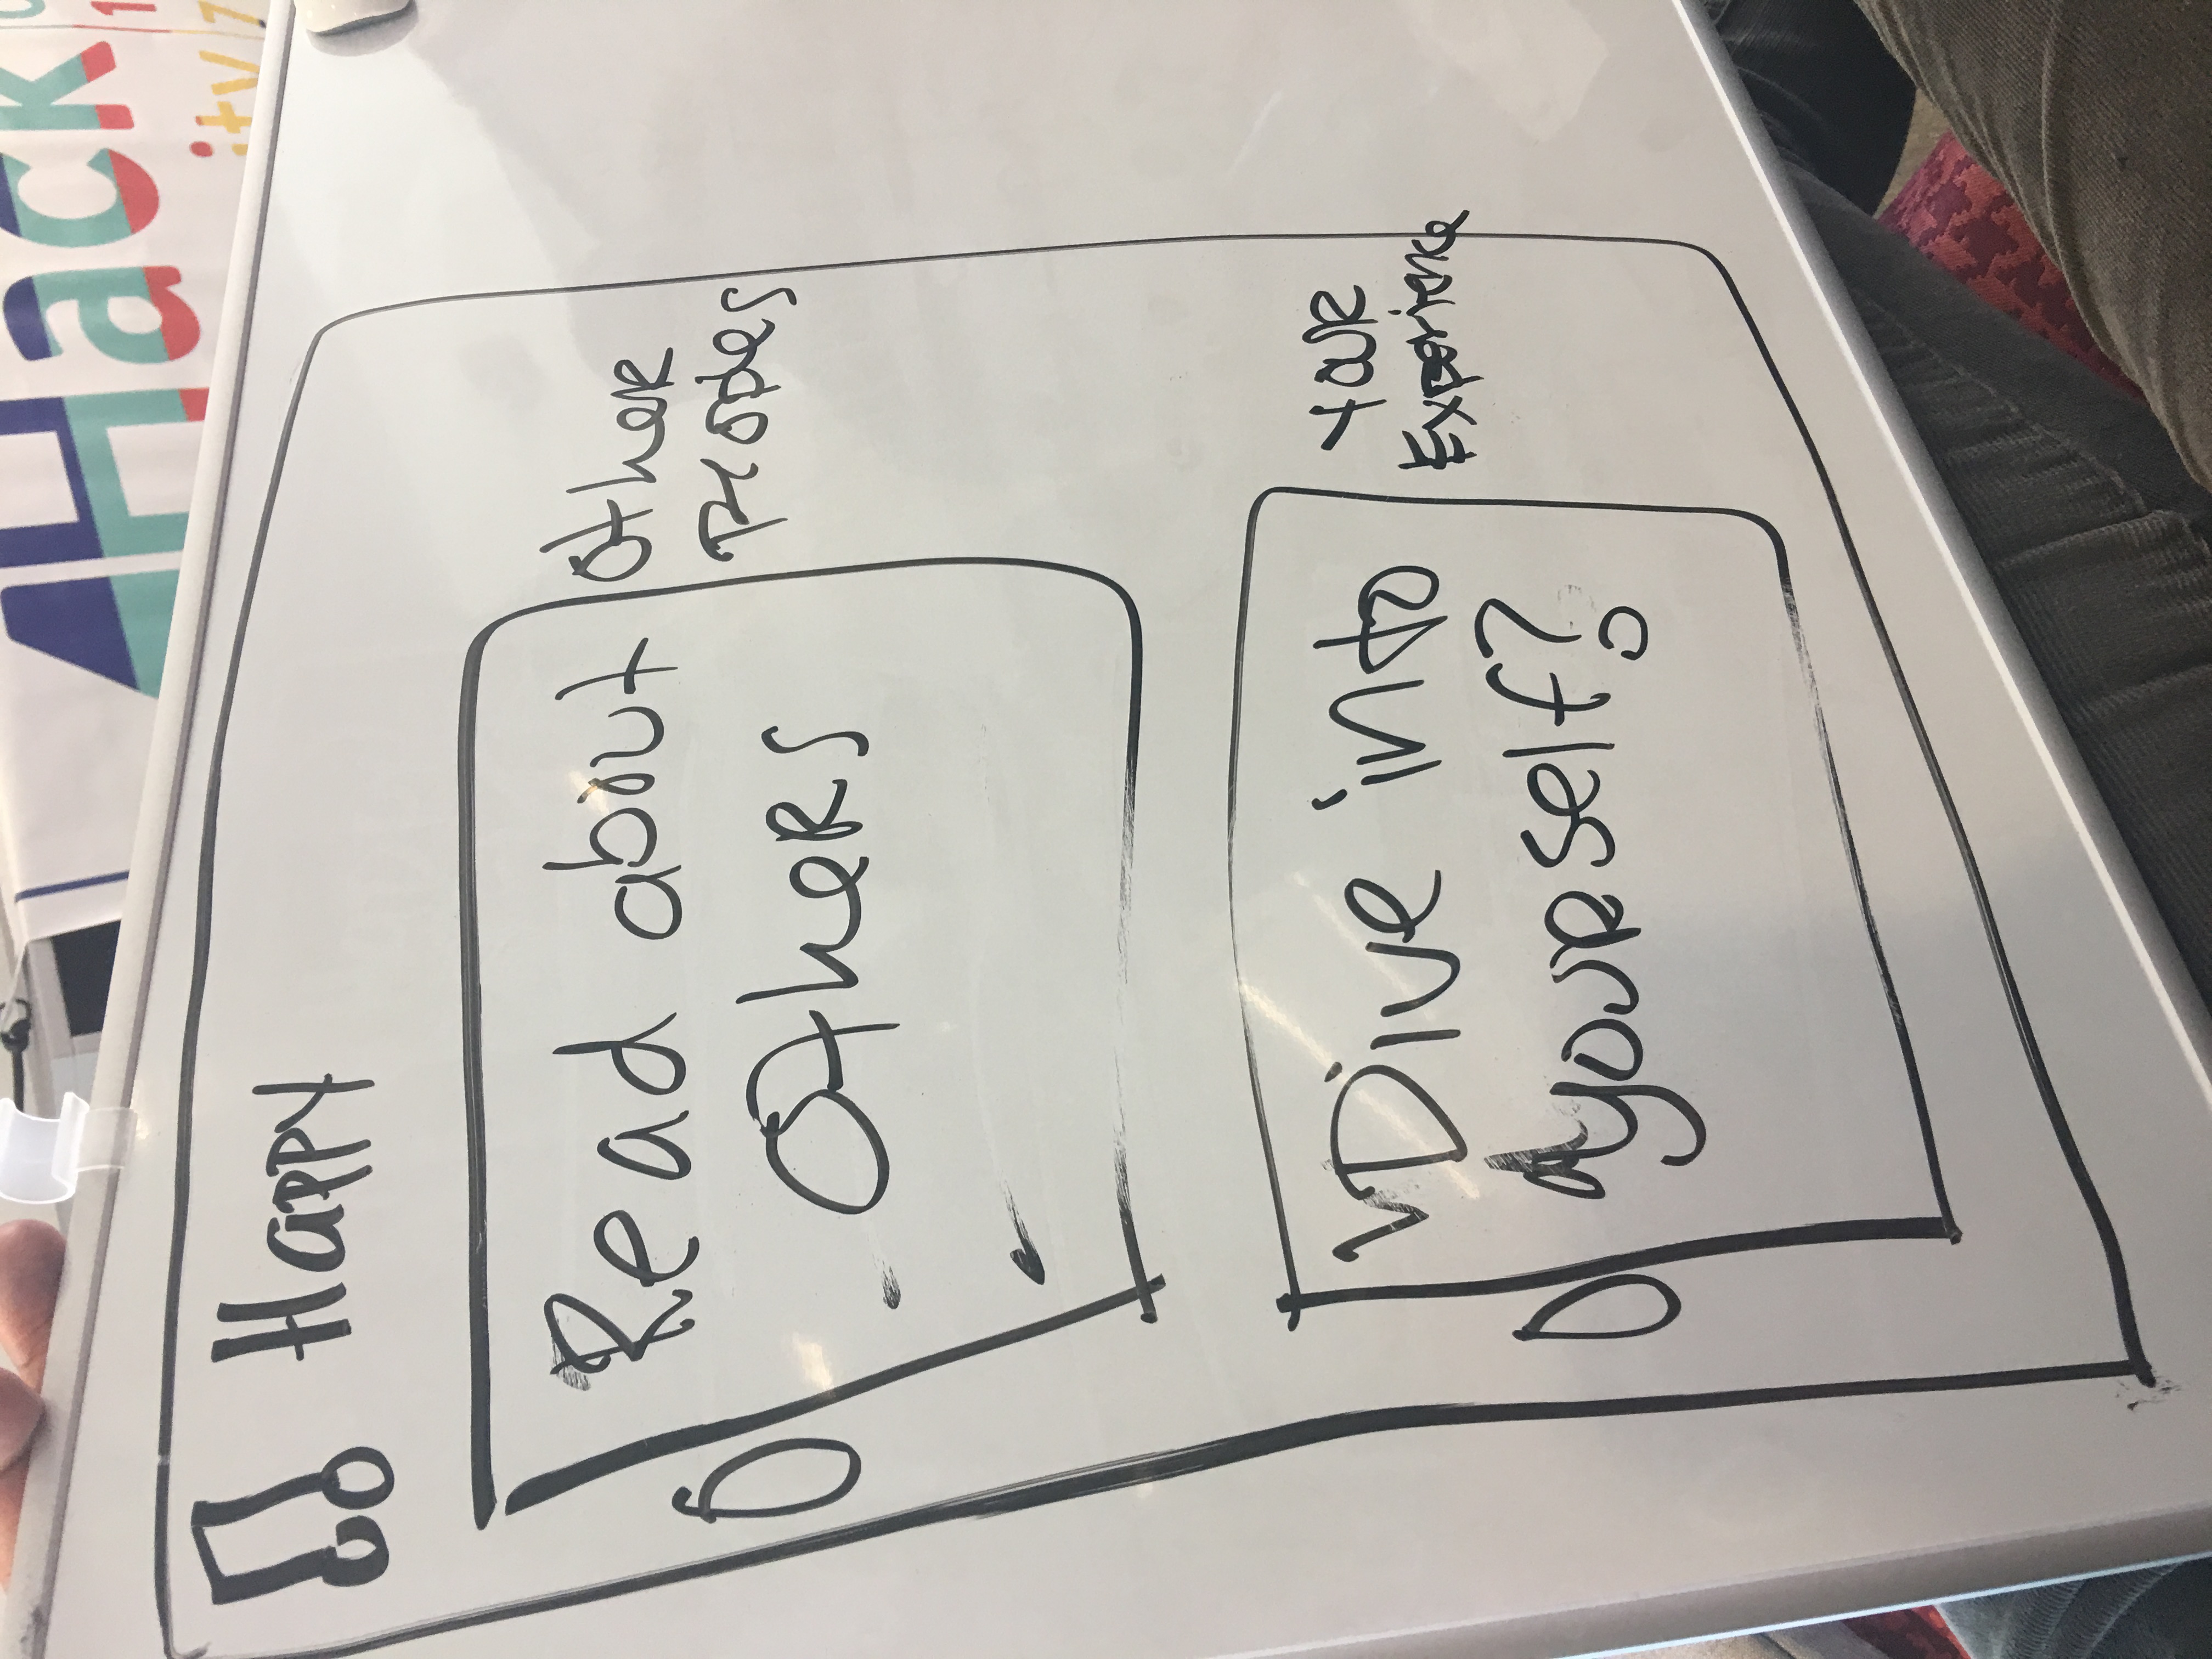 Hack
ity
Happy
Read about
Others
Other
Peoples
Dive into
yourself?
Your
Experience